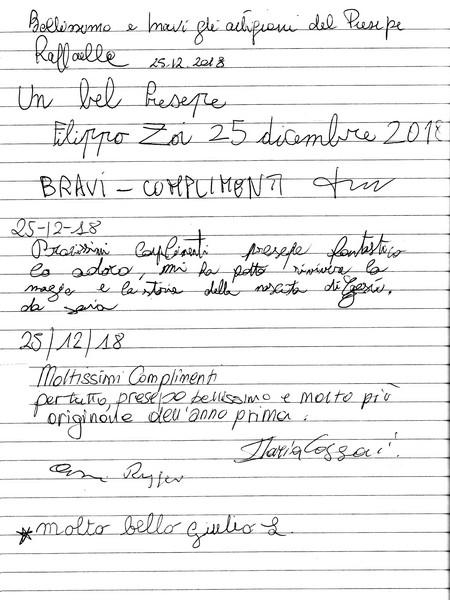 Bellissimo e bravi gli artigiani del Presepe
Raffaelle 25.12.2018
Un bel Presepe
Filippo Zoi 25 dicembre 2018
BRAVI - COMPLIMENTI
25-12-18
Bravissimi Complimenti presepe fantastico
lo adoro, mi ha fatto rivivere la
magia e la storia della nascita di Gesù.
da
25/12/18
Moltissimi Complimenti
per tutto, presepo bellissimo e molto più
originale dell'anno prima.
Ilaria
* molto bello Giulio L.